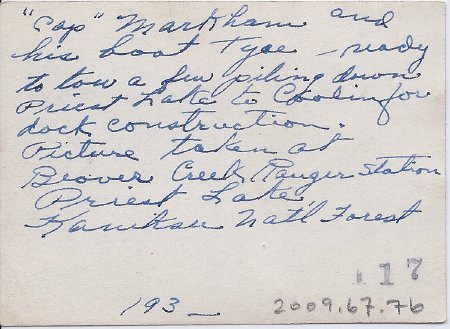 "Cap" Markham and
his boat Tyee - ready
to tow a few piling down
Priest Lake to Coolin for
dock construction.
Picture taken at
Beaver Creek Ranger Station
Priest Lake
Kaniksu Nat'l Forest
.17
193_
2009.67.76